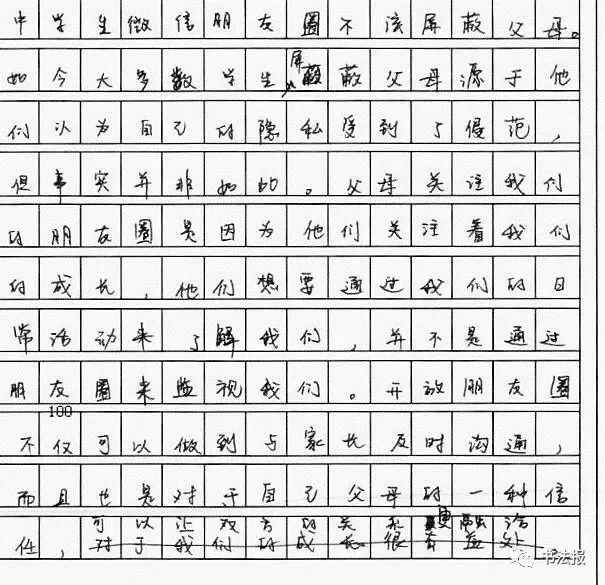 中学生微信朋友圈不该屏蔽父母。
如今大多数学生屏蔽父母源于他
们认为自己的隐私受到了侵范，
但事实并非如此。父母关注我们
的朋友圈是因为他们关注着我们
的成长，他们想要通过我们的日
常活动来了解我们，并不是通过
朋友圈来监视我们。开放朋友圈
100
不仅可以做到与家长及时沟通，
而且也是对于自己父母的一种信
可以让双方的关系更融洽
任，对于我们的成长很有益处。
书法报